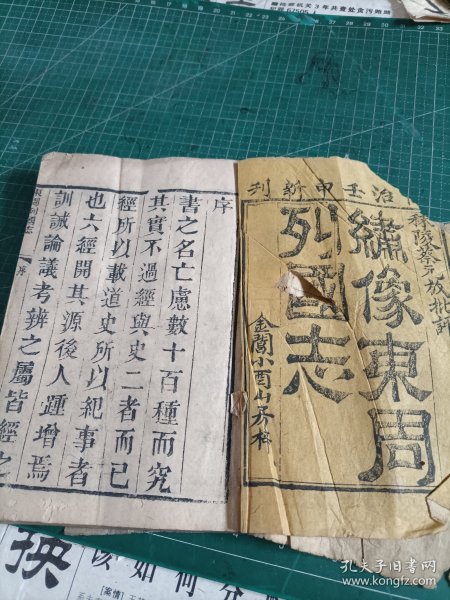 治壬申新刊
秣陵蔡元放批評
繡像東周
列國志
金閶小酉山房梓
序
書之名亡慮數十百種而究
其實不過經與史二者而已
經所以載道史所以紀事者
也六經開其源後人踵增焉
訓誡論議考辨之屬皆經之
東周列國志
序
换
该如何分
【案情】
孔夫子旧书网